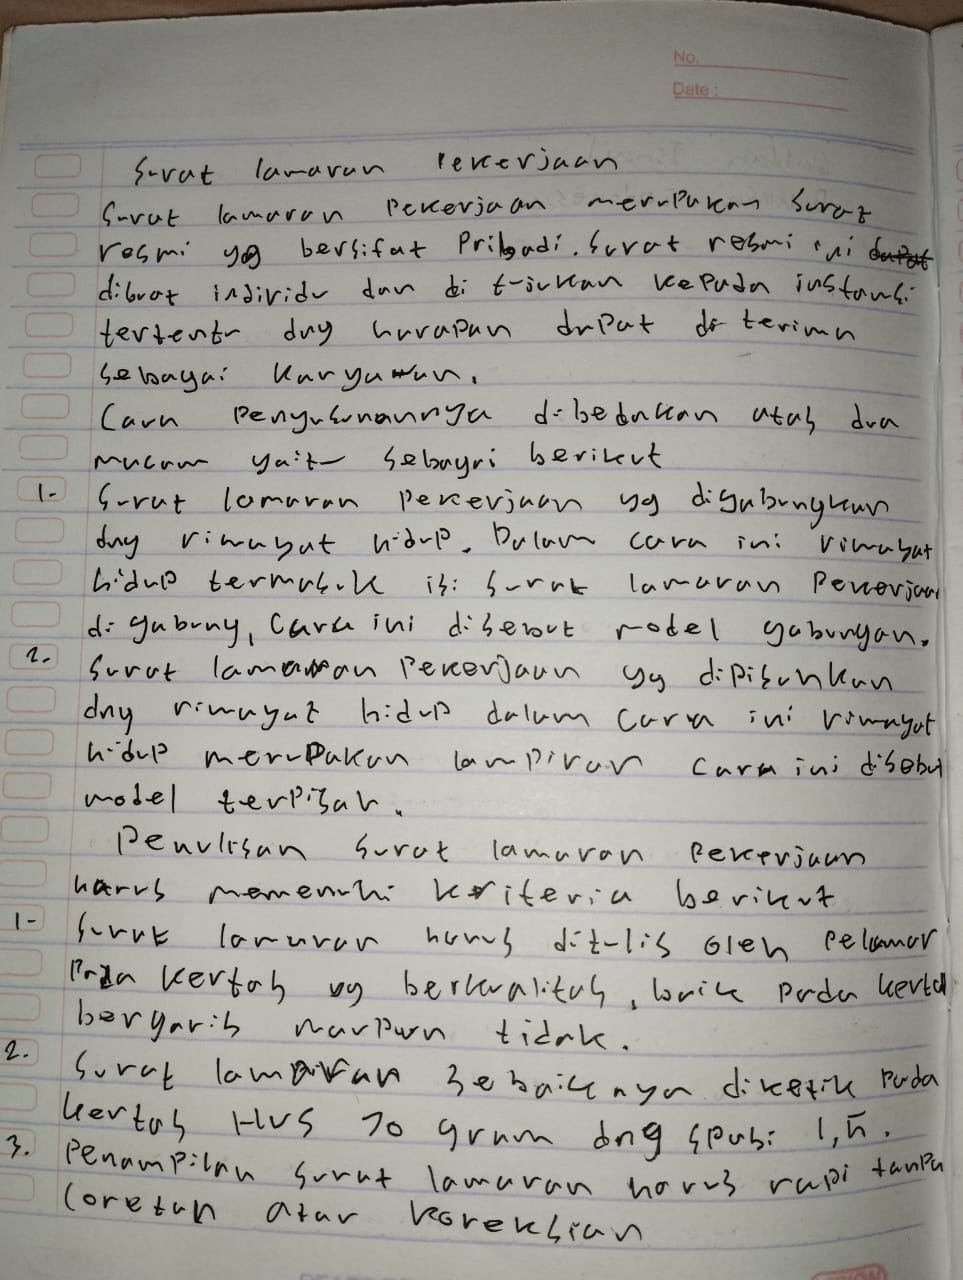 No.
Date :
Surat lamaran Pekerjaan
Surat lamaran Pekerjaan merupakan Surat
resmi yg bersifat Pribadi. Surat resmi ini dapat
dibuat individu dan di tujukan kepada instansi
tertentu dng harapan dapat di terima
Sebagai Karyawan.
Cara Penyusunannya dibedakan atas dua
macam yaitu Sebagai berikut
1- Surat lamaran Pekerjaan yg digabungkan
dng riwayat hidup. Dalam cara ini riwayat
hidup termasuk isi Surat lamaran Pekerjaan
di gabung, Cara ini disebut model gabungan.
2. Surat lamaran Pekerjaan yg dipisahkan
dng riwayat hidup dalam Cara ini riwayat
hidup merupakan lampiran Cara ini disebut
model terpisah.
Penulisan Surat lamaran Pekerjaan
harus memenuhi kriteria berikut
1- Surat lamaran harus ditulis oleh Pelamar
Pada kertas yg berkualitas, baik pada kertas
bergaris maupun tidak.
2. Surat lamaran Sebaiknya diketik Pada
kertas HVS 70 gram dng spasi 1,5.
3. Penampilan Surat lamaran harus rapi tanpa
Coretan atau koreksian